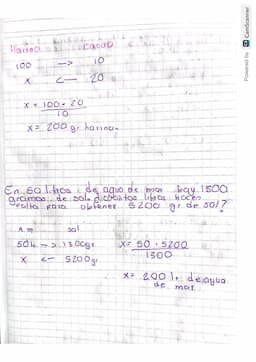 Harina cacao
100 --> 10
x <-- 20
x = 100 · 20
10
x = 200 gr harina.
En 50 litros de agua de mar hay 1300
gramos de sal. d cuantos litros hacen
falta para obtener 5200 gr de sal?
A m sal
50 l --> 1300 gr
x <-- 5200 gr
x = 50 · 5200
1300
x = 200 lt de agua
de mar
Powered by CamScanner